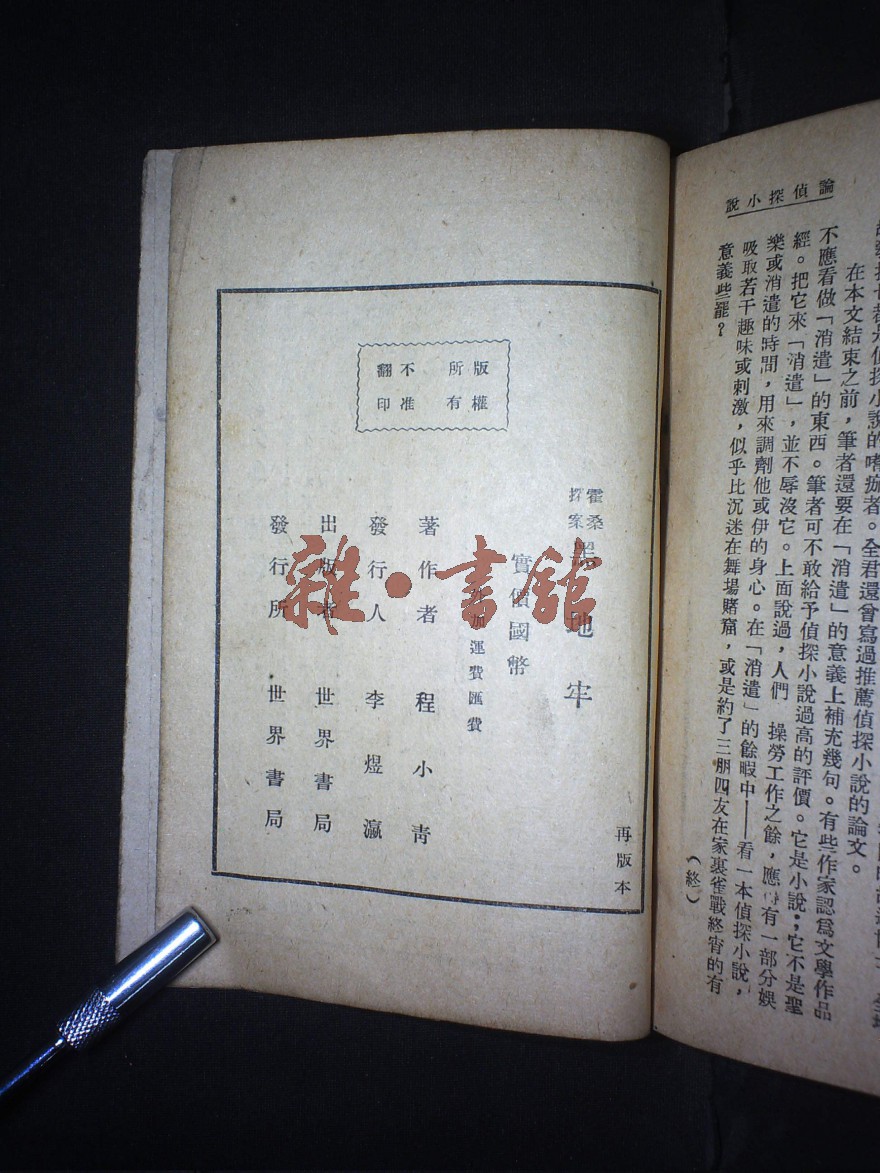 論偵探小說
在本文結束之前，筆者還要在「消遣」的意義上補充幾句。有些作家認爲文學作品
不應看做「消遣」的東西。筆者可不敢給予偵探小說過高的評價。它是小說；它不是聖
經。把它來「消遣」，並不辱沒它。上面說過，人們 操勞工作之餘，應 有一部分娛
樂或消遣的時間，用來調劑他或伊的身心。在「消遣」的餘暇中——看一本偵探小說，
吸取若干趣味或刺激，似乎比沉迷在舞場賭窟，或是約了三朋四友在家裏雀戰終宵的有
意義些罷？
（終）
版權所有
不准翻印
再版本
霍桑探案
地牢
實價國幣
加運費匯費
著作者 程小青
發行人 李煜瀛
出版者 世界書局
發行所 世界書局
雜·書館